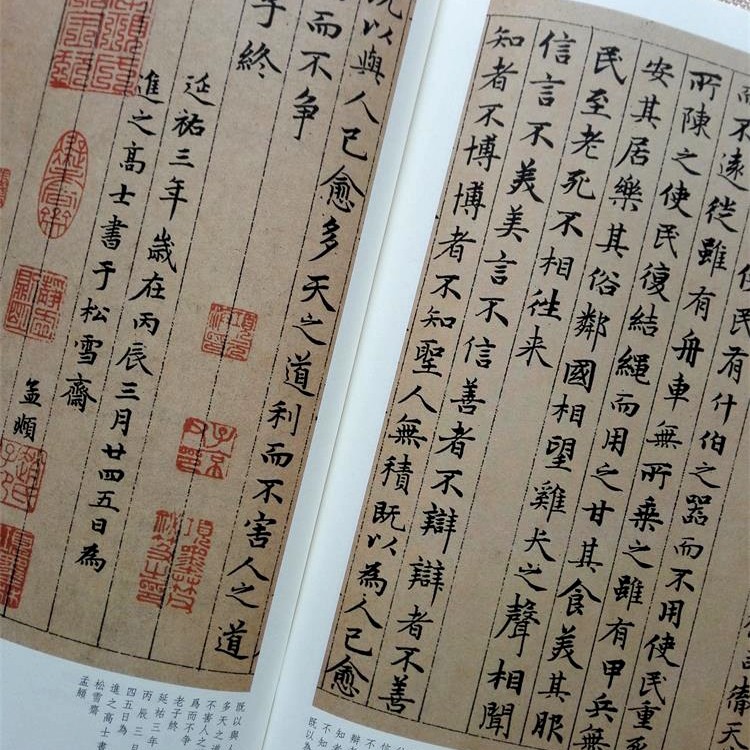 使民有什伯之器而不用使民重死
而不遠徙雖有舟車無所乗之雖有甲兵無
所陳之使民復結繩而用之甘其食美其服
安其居樂其俗鄰國相望雞犬之聲相聞
民至老死不相往来
信言不美美言不信善者不辯辯者不善
知者不博博者不知聖人無積既以為人己愈
既以與人己愈多天之道利而不害人之道
而不争
子終
延祐三年歲在丙辰三月廿四五日為
進之髙士書于松雪齋
孟頫
不知
既以為
既以與人
多天之道
不害人之
為而不爭
老子終
延祐三年
丙辰三月
四五日為
進之高士書
松雪齋
孟頫